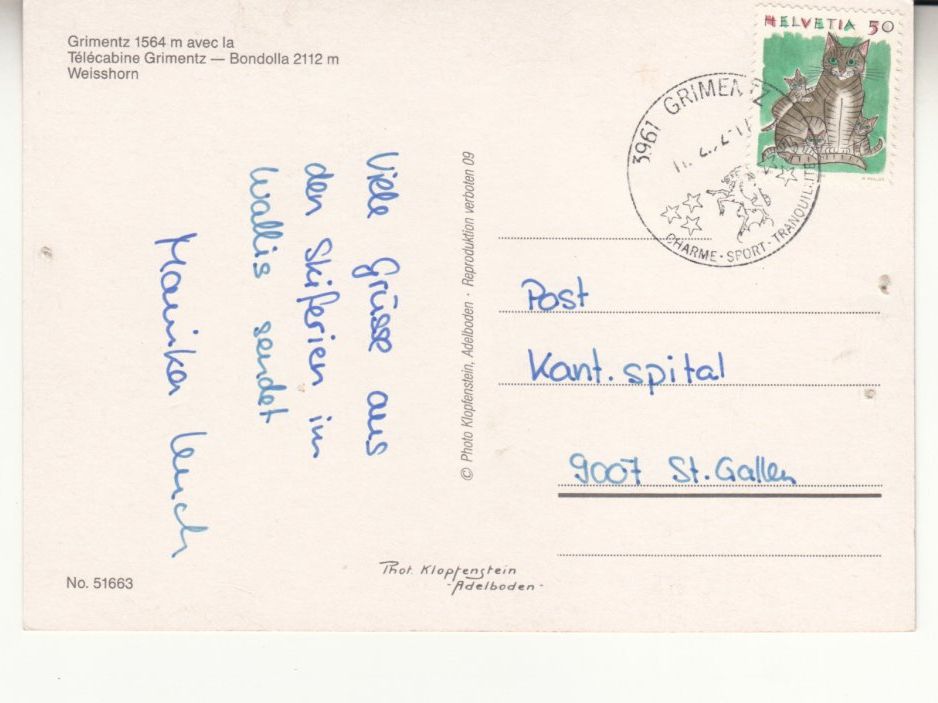 Grimentz 1564 m avec la
Télécabine Grimentz — Bondolla 2112 m
Weisshorn
Viele Grüsse aus
den Skiferien im
Wallis sendet
© Photo Klopfenstein, Adelboden · Reproduktion verboten 09
HELVETIA 50
3961 GRIMENTZ
CHARME - SPORT - TRANQUILLITE
Post
Kant. spital
9007 St. Gallen
No. 51663
Phot. Klopfenstein
-Adelboden-